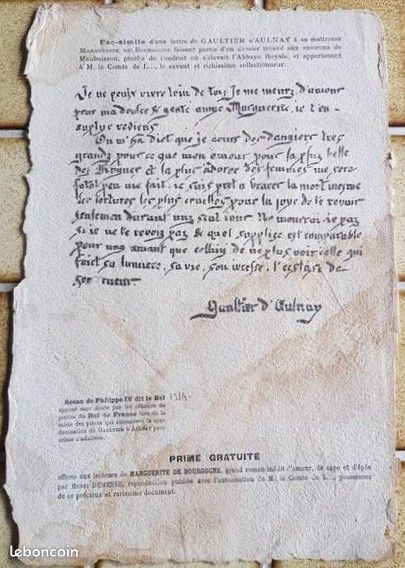 Fac-simile d'une lettre de GAULTIER D'AULNAY à sa maîtresse
MARGUERITE DE BOURGOGNE faisant partie d'un dossier trouvé aux environs de
Maubuisson, proche de l'endroit où s'élevait l'Abbaye Royale, et appartenant
à M. le Comte de L..., le savant et richissime collectionneur.
Je ne peulx vivre loin de toy Je me meurs d'amour
pour ma doulce & gente amye Marguerite, ie t'en
suplye reviens
On m'ha dict que je cours des dangiers tres
grands pour ce que mon amour pour la plus belle
des et la plus adorée des femmes me sera
fatal peu me fait. ie suis prest a braver la mort mesme
les tortures les plus cruelles pour la joye de te revoir
seulement durant ung seul iour. Ne mourrai-ie pas
si ie ne te revois pas & quel supplice est comparable
pour ung amant que celluy de ne plus voir celle qui
faict sa lumiere, sa vie, son ivresse, l'extase de
son cueur.
Gaultier d'Aulnay
Sceau de Philippe IV dit le Bel 1314
apposé sans doute par les officiers de
justice du Roi de France lors de la
saisie des pièces qui amenèrent la con-
damnation de GAULTIER D'AULNAY pour
crime d'adultère.
PRIME GRATUITE
offerte aux lecteurs de MARGUERITE DE BOURGOGNE, grand roman inédit d'amour, de cape et d'épée
par HENRI DEMESSE, reproduction publiée avec l'autorisation de M. le Comte de L..., possesseur
de ce précieux et rarissime document.
leboncoin